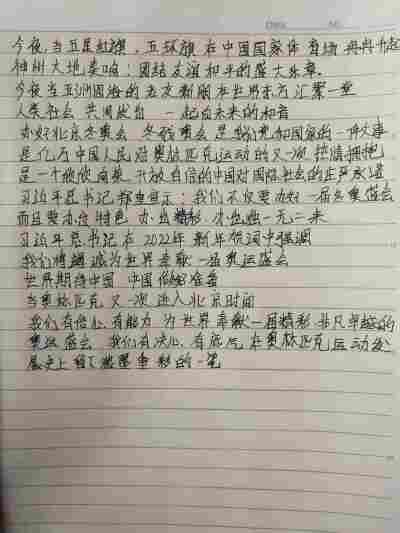 Date. No.
今夜,当五星红旗、五环旗在中国国家体育场冉冉升起
神州大地奏响:团结友谊和平的盛大乐章.
今夜当五洲四海的老友新朋在世界东方汇聚一堂
人类社会共同发出 一起向未来的和音
办好北京冬奥会 冬残奥会是我们党和国家的一件大事
是亿万中国人民对奥林匹克运动的又一次热情拥抱
是一个欣欣向荣、开放自信的中国对国际社会的庄严承诺
习近平总书记郑重宣示:我们不仅要办好一届冬奥盛会
而且要办出特色 办出精彩 办出独一无二来
习近平总书记在2022年新年贺词中强调
我们将竭诚为世界奉献一届奥运盛会
世界期待中国 中国做好准备
当奥林匹克又一次进入北京时间
我们有信心有能力为世界奉献一届精彩非凡卓越的
奥运盛会 我们有决心有底气在奥林匹克运动发
展史上留下浓墨重彩的一笔